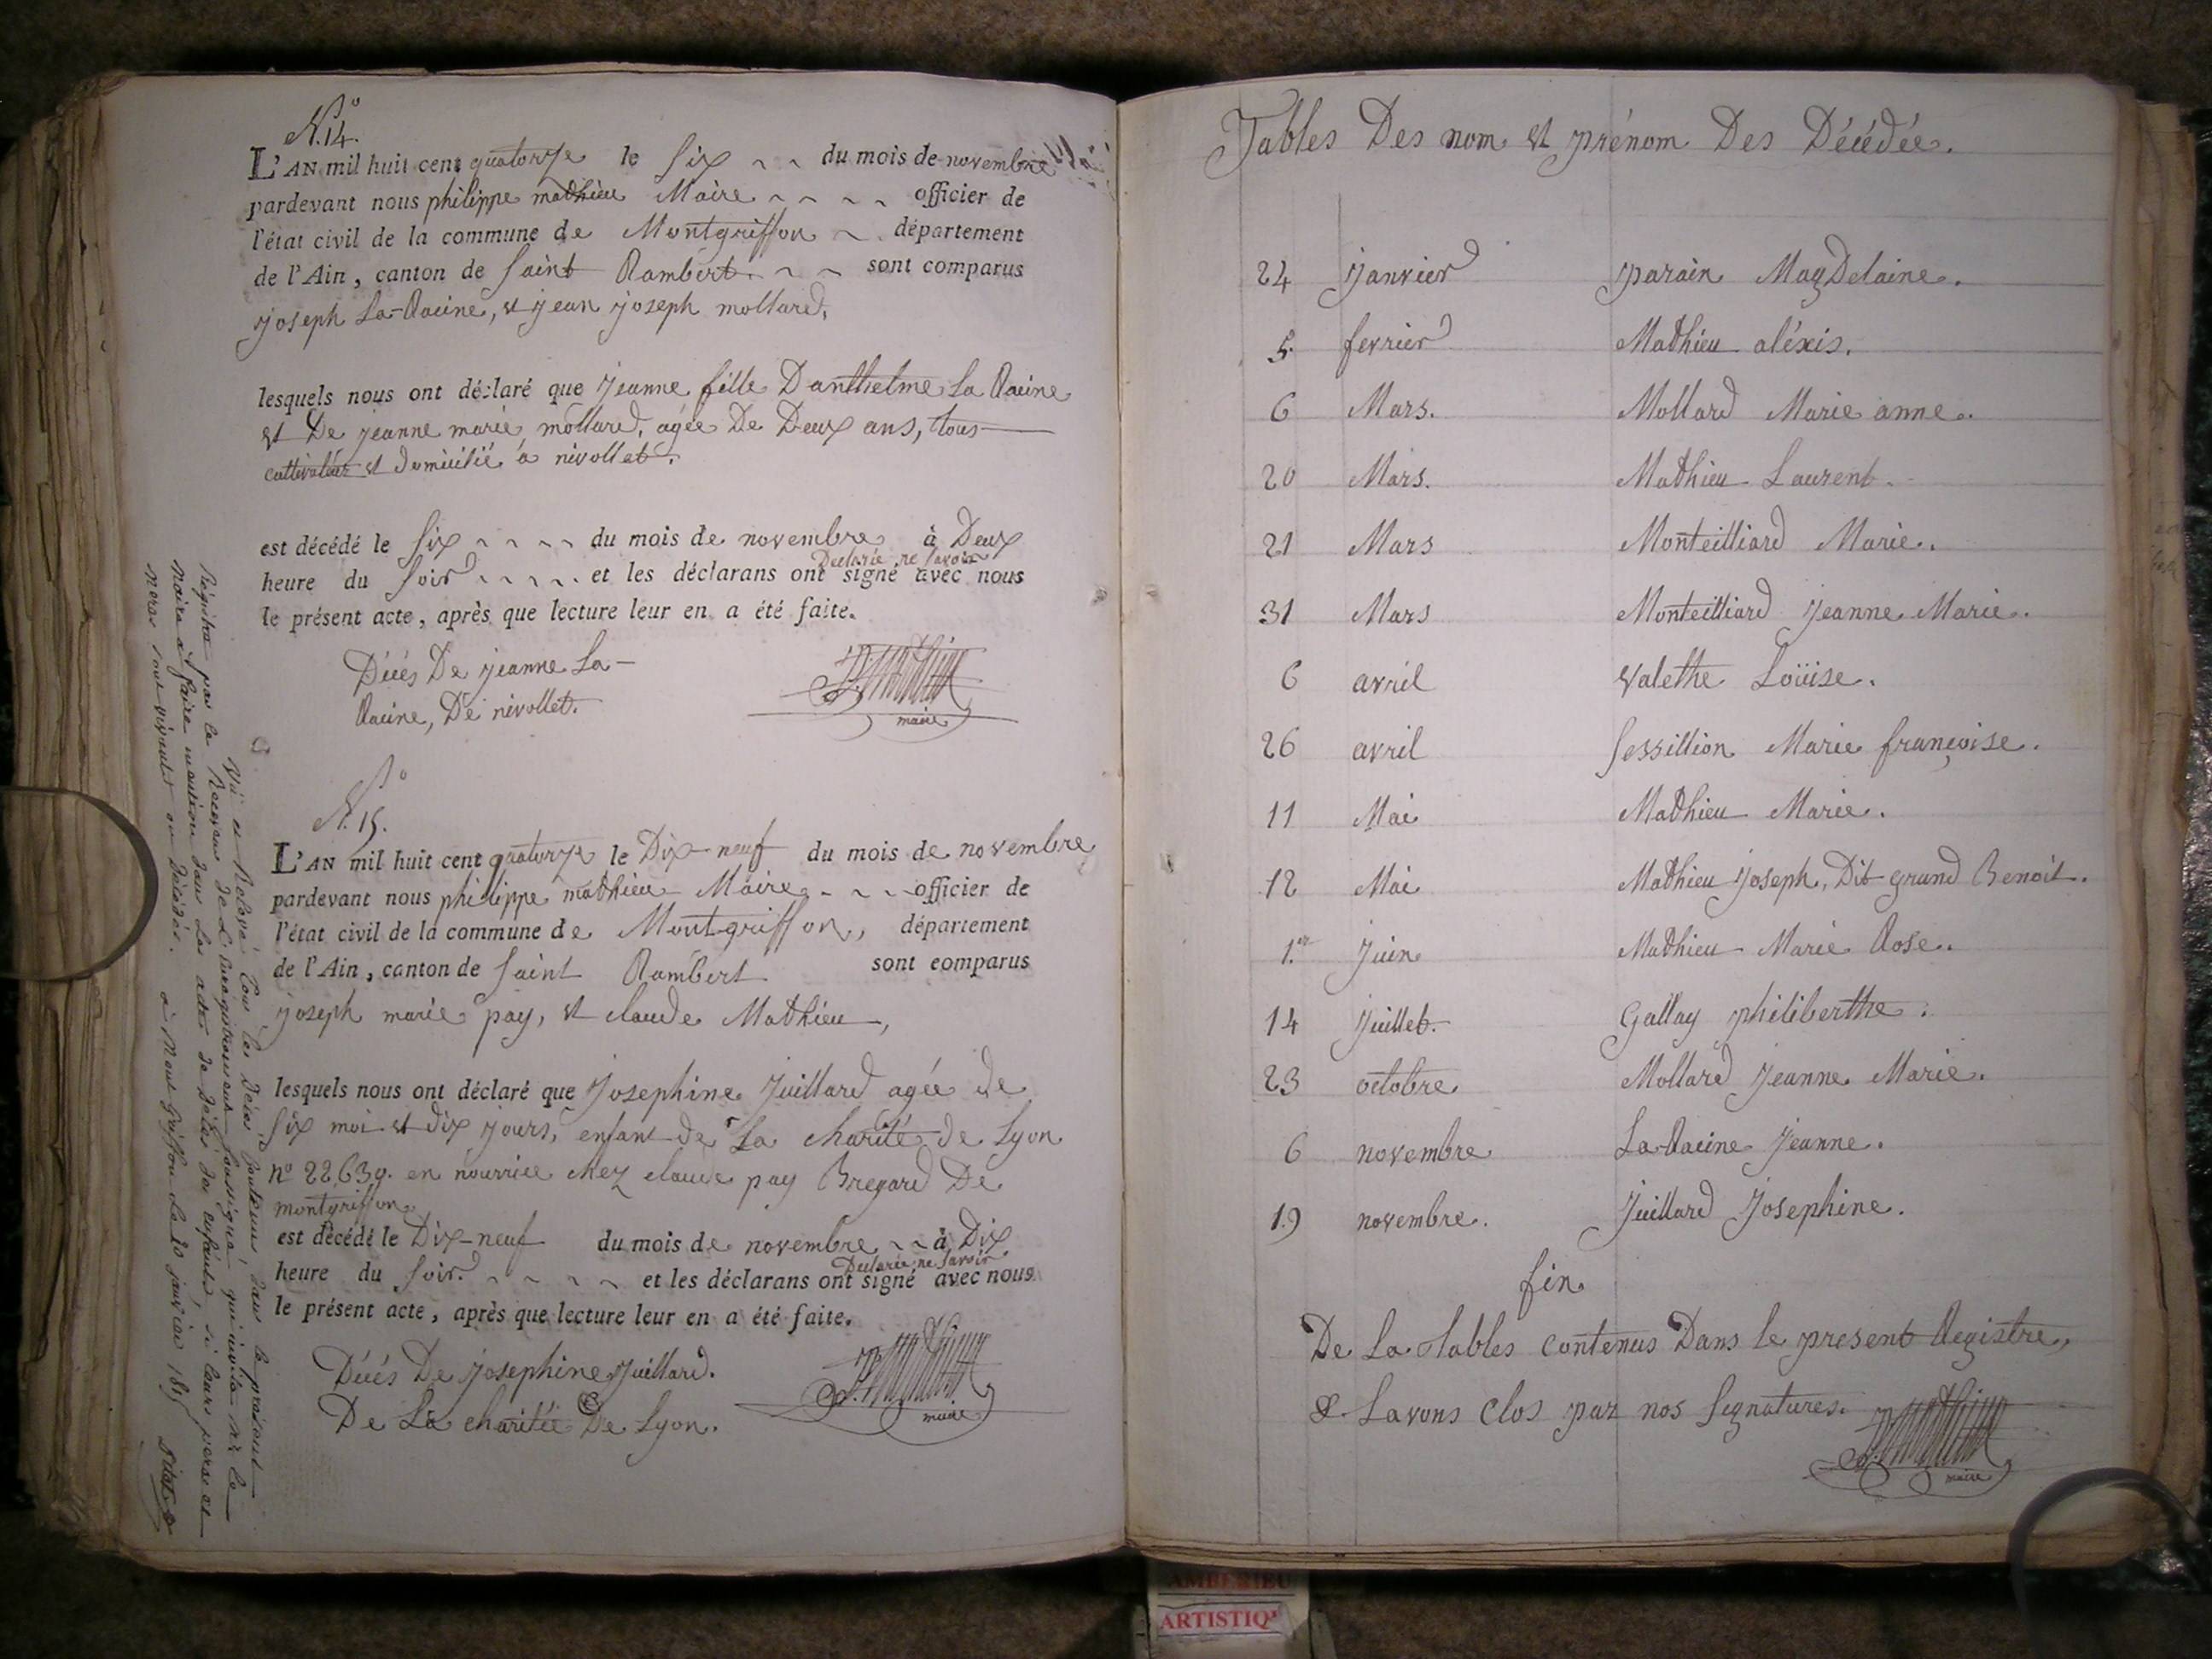 N.º 14.
L'AN mil huit cent quatorze le six du mois de novembre
pardevant nous philippe mathieu Maire officier de
l'état civil de la commune de Montgriffon département
de l'Ain, canton de saint Rambert sont comparus
joseph La-Racine, et jean joseph mollard,
lesquels nous ont déclaré que jeanne fille Danthelme La Racine
et De jeanne marie mollard, agée De Deux ans, tous
cultivateur et domicilié à nivollet.
est décédé le six du mois de novembre à Deux
Declarée ne savoir
heure du soir et les déclarans ont signé avec nous
le présent acte, après que lecture leur en a été faite.
Décés De jeanne La-
Racine, De nivollet.
maire
N.º 15.
L'AN mil huit cent quatorze le Dix-neuf du mois de novembre
pardevant nous philippe mathieu Maire officier de
l'état civil de la commune de Montgriffon, département
de l'Ain, canton de saint Rambert sont comparus
joseph marie pay, et claude Mathieu,
lesquels nous ont déclaré que Josephine Juillard agée de
six moi et dix jours, enfant de La charité de Lyon
nº 22,639. en nourrice chez claude pay Bregard De
montgriffon
est décédé le Dix-neuf du mois de novembre à Dix
Declarée ne savoir
heure du soir et les déclarans ont signé avec nous
le présent acte, après que lecture leur en a été faite.
Décés De josephine juillard.
De La charitée De Lyon.
maire
Vu et Relevé tous les Décès contenus dans le présent
Régistre par le Receveur de L'enregistrement soussigné qui invite mr le
Maire à faire mention dans les actes de décès des enfants, si leurs peres et
meres sont vivants ou décédés. à Mont Griffon le 20 janvier 1815
Tables Des nom et prénom Des Décédée.
24 Janvier parain MagDelaine.
5. fevrier Mathieu aléxis.
6 Mars. Mollard Marie anne.
20 Mars. Mathieu Laurent.
21 Mars Monteilliard Marie.
31 Mars Monteilliard Jeanne Marie.
6 avril Valethe Loüise.
26 avril Sessillion Marie françoise.
11 Mai Mathieu Marie.
12 Mai Mathieu Joseph, Dit grand Benoit.
1.er Juin Mathieu Marie Rose.
14 Juillet. Gallay philiberthe.
23 octobre Mollard Jeanne Marie.
6 novembre La-Racine Jeanne.
19 novembre. Juillard Josephine.
fin
De La tables contenus Dans le present Registre,
& Lavons clos par nos signatures.
maire
AMBERIEU
ARTISTIQ